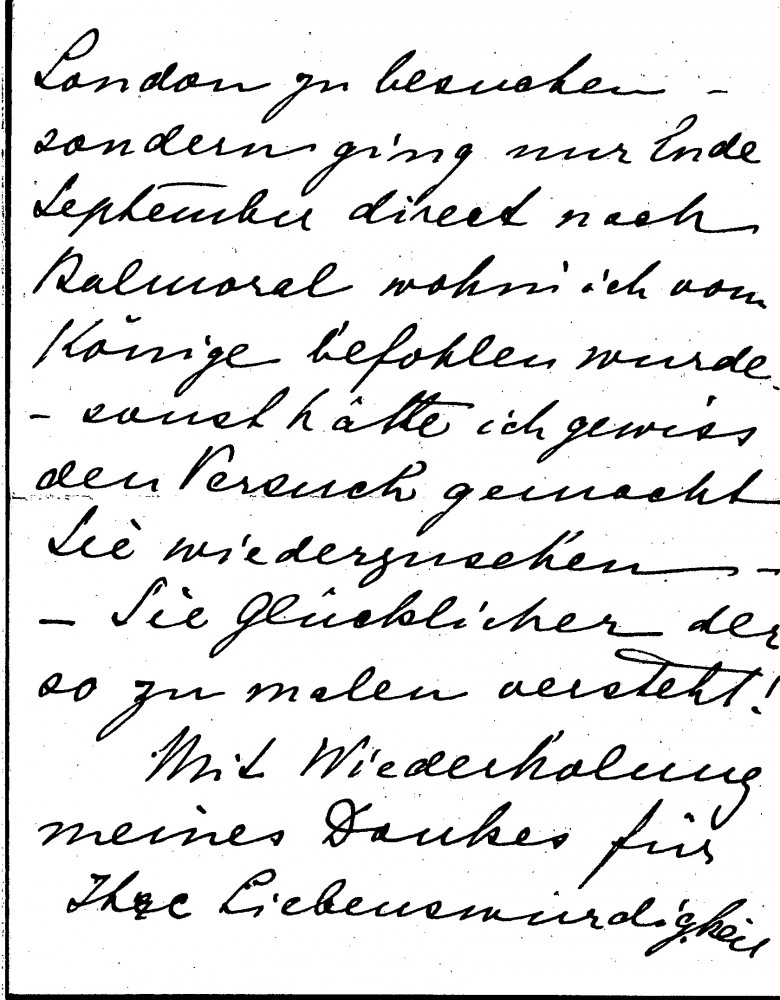 London zu besuchen –
sondern ging nur Ende
September direct nach
Balmoral wohin ich vom
Könige befohlen wurde.
– sonst hätte ich gewiss
den Versuch gemacht
Sie wiederzusehen –
– Sie Glücklicher der
so zu malen versteht!
Mit Wiederholung
meines Dankes für
Ihre Liebenswürdigkeit